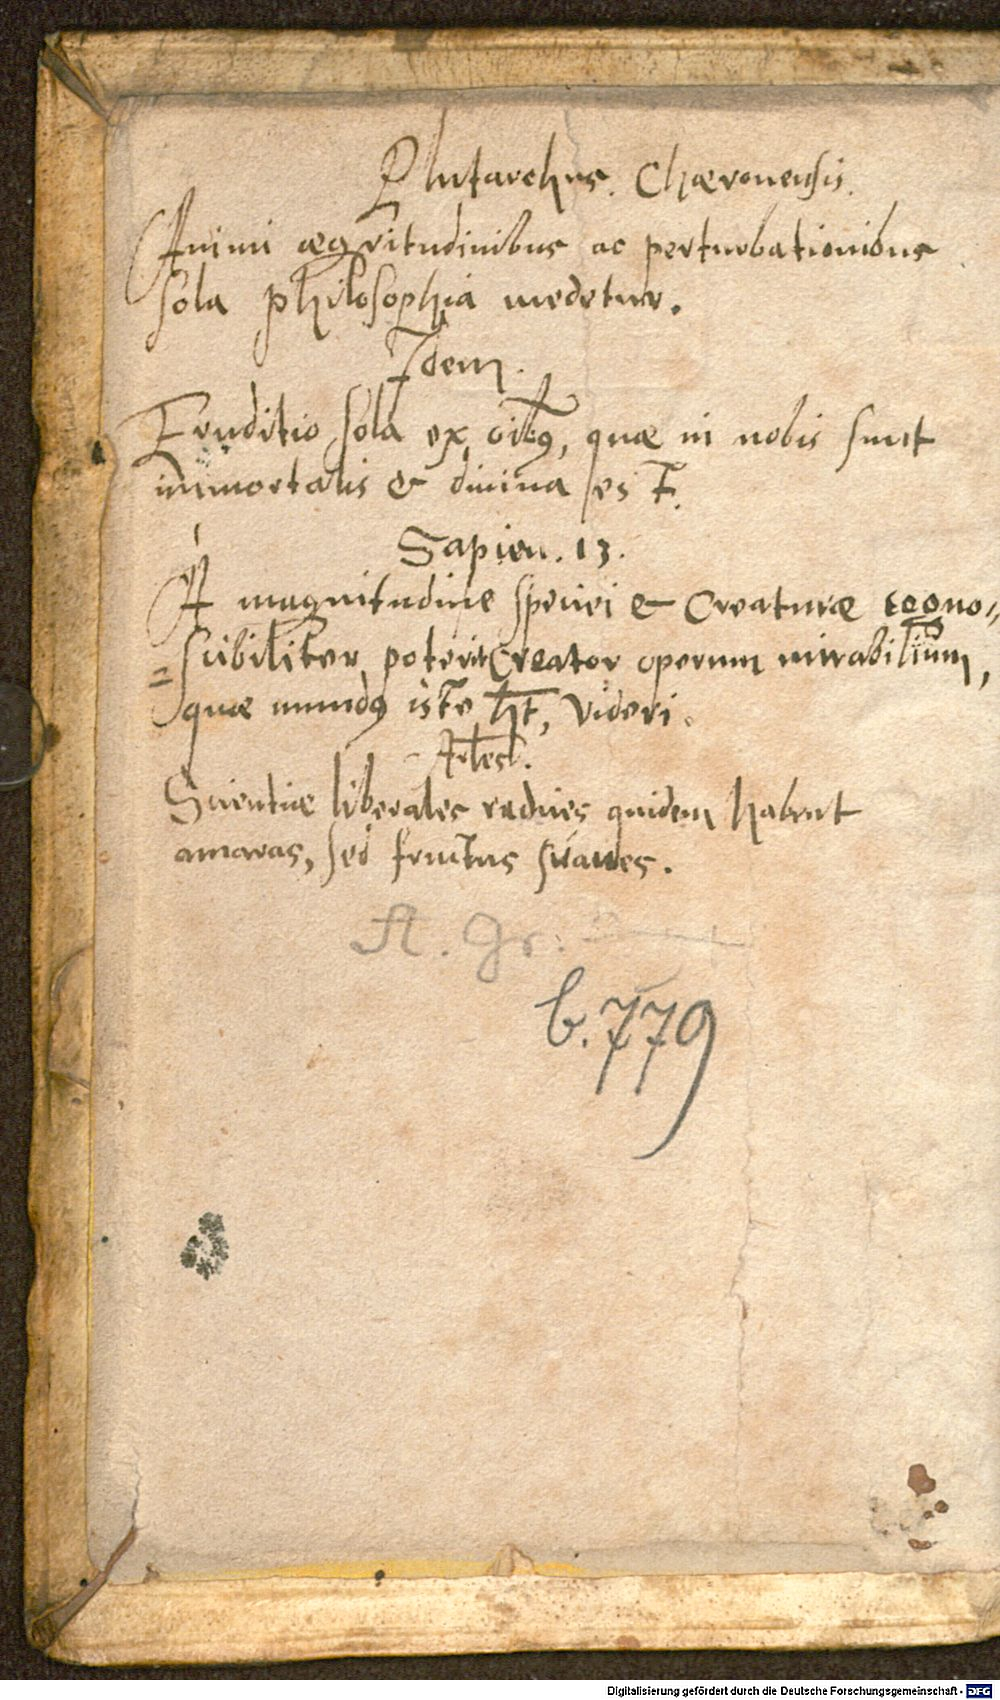 Plutarchus. Chæronensis.
Animi ægritudinibus ac perturbationibus
sola philosophia medetur.
Idem.
Eruditio sola ex oībꝯ, quæ in nobis sunt
immortalis & diuina res ē.
Sapien. 13.
A magnitudine speciei & Creaturæ cogno-
=scibiliter poterit Creator operum mirabilium,
quæ mundꝯ iste ht̄, videri.
Scientiæ liberales radices quidem habent
amaras, sed fructus suaues.
A. Gr:
b. 779
Digitalisierung gefördert durch die Deutsche Forschungsgemeinschaft - DFG